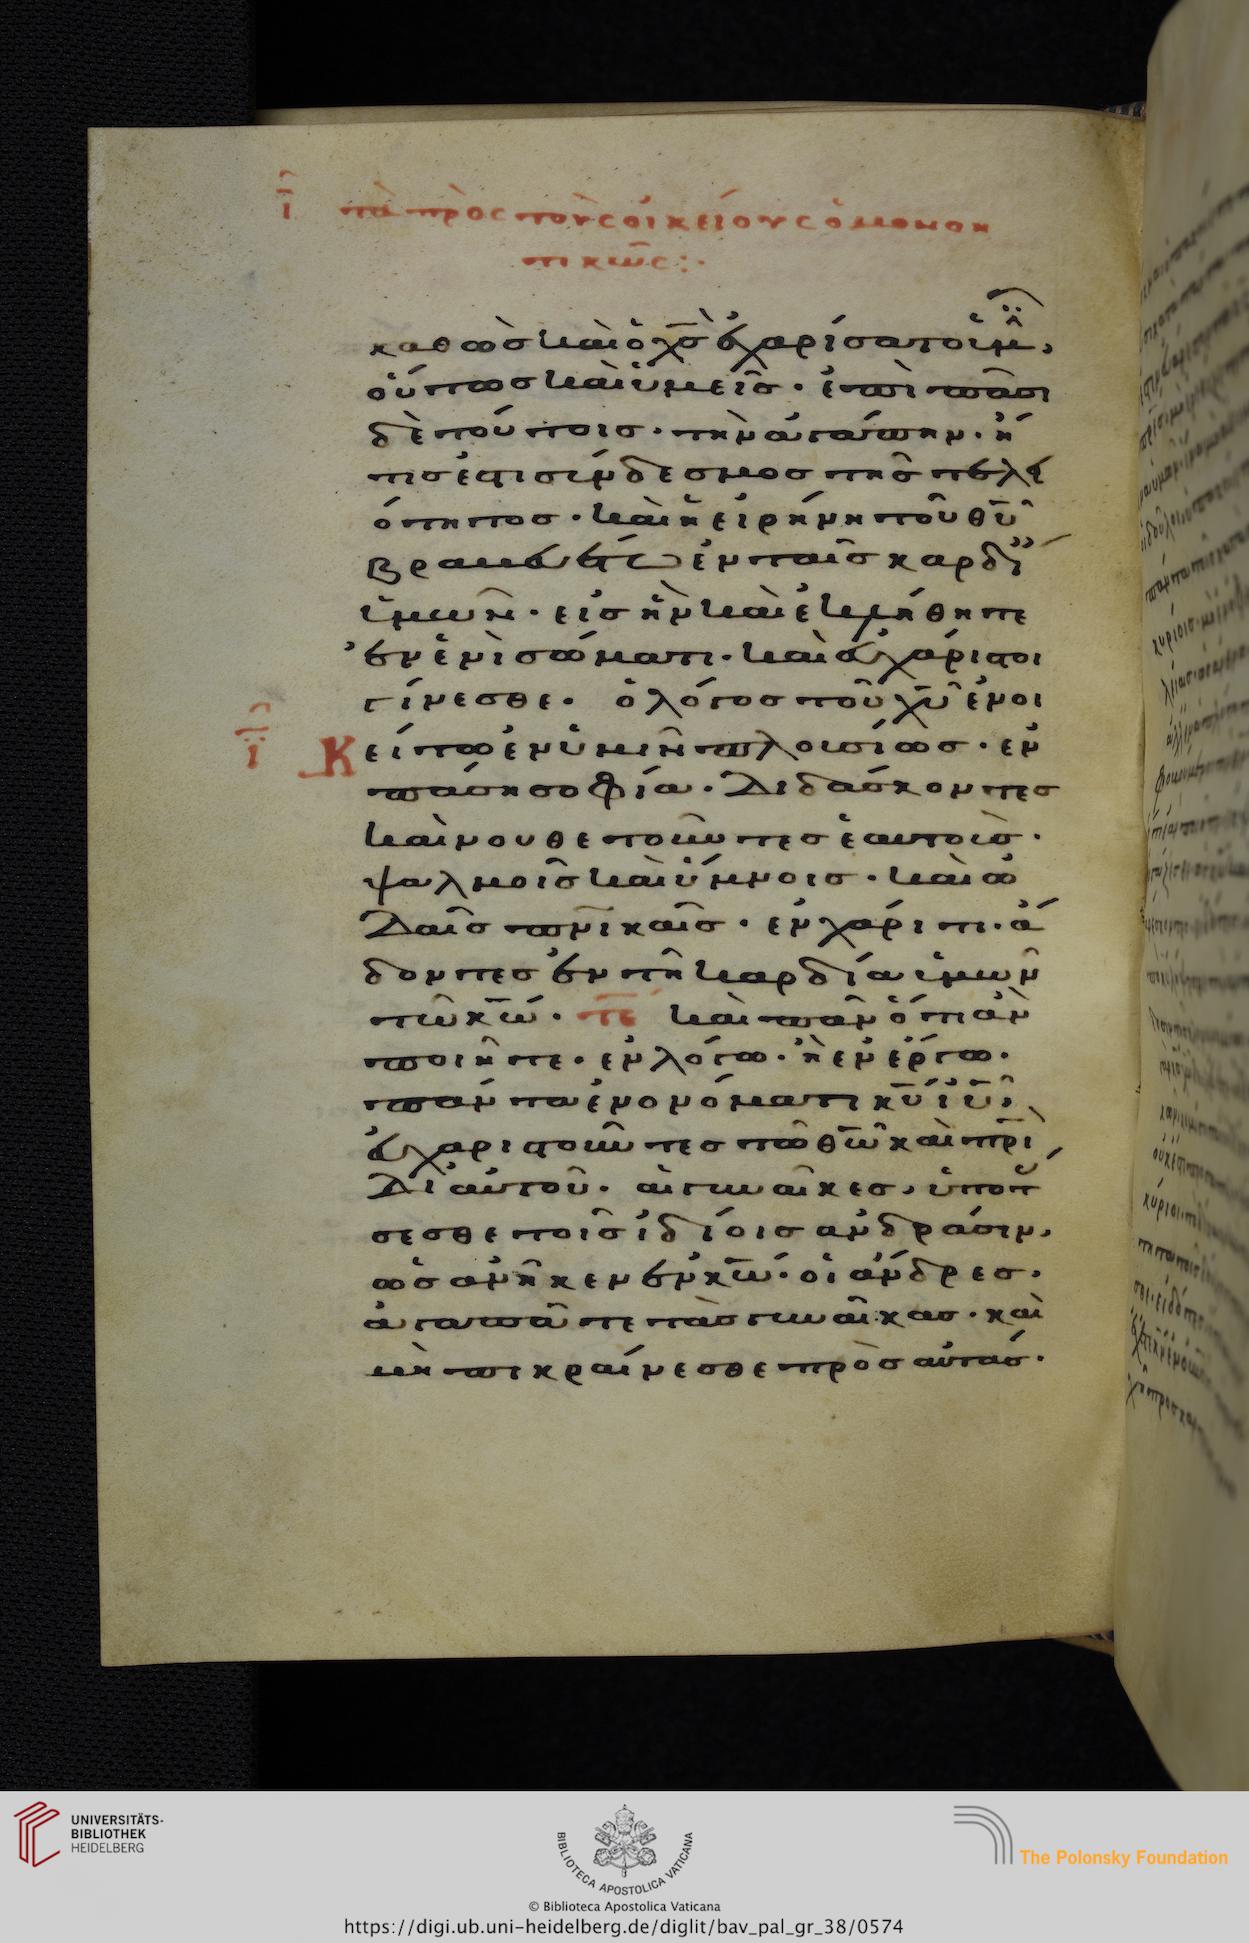 ῑ τὰ πρὸς τοὺς οἰκείους ὁμονοη
τικῶς:·
καθὼσ καὶ ὁ χ̅σ̅ ἐχαρίσατο ἡμῖν,
οὕτωσ καὶ ὑμεῖσ· ἐπὶ πᾶσι
δὲ τούτοισ· τὴν ἀγάπην· ἥ
τισ ἐστι σύνδεσμοσ τῆσ τελει
ότητοσ· καὶ ἡ εἰρήνη τοῦ θ̅υ̅
βραβευέτω ἐν ταῖσ καρδί
ὑμῶν· εἰσ ἣν καὶ ἐκλήθητε
ἐν ἑνὶ σώματι· καὶ εὐχάριστοι
γίνεσθε· ὁ λόγοσ τοῦ χ̅υ̅ ἐνοι
κείτω ἐν ὑμῖν πλουσίωσ· ἐν
πάση σοφία· διδάσκοντεσ
καὶ νουθετοῦντεσ ἑαυτοὺσ·
ψαλμοῖσ καὶ ὕμνοισ· καὶ ὠ
δαῖσ π̅ν̅ικαῖσ· ἐν χάριτι· ἄ
δοντεσ ἐν τῆ καρδία ὑμῶν
τῶ κ̅ω̅· τε̅ καὶ πᾶν ὅτι ἀν
ποιῆτε· ἐν λόγω· ἢ ἐν ἔργω·
πάντα ἐν ὀνόματι κ̅υ̅ ἰ̅υ̅,
εὐχαριστοῦντεσ τῶ θ̅ω̅ καὶ π̅ρ̅ι̅
δι' αὐτοῦ· αἱ γυναῖκεσ, ὑποτάσ
σεσθε τοῖσ ἰδίοισ ἀνδράσιν,
ὡσ ἀνῆκεν ἐν κ̅ω̅· οἱ ἄνδρεσ·
ἀγαπᾶτε τὰσ γυναῖκασ· καὶ
μὴ πικραίνεσθε πρὸσ αὐτάσ·
UNIVERSITÄTS-
BIBLIOTHEK
HEIDELBERG
BIBLIOTECA APOSTOLICA VATICANA
The Polonsky Foundation
© Biblioteca Apostolica Vaticana
https://digi.ub.uni-heidelberg.de/diglit/bav_pal_gr_38/0574